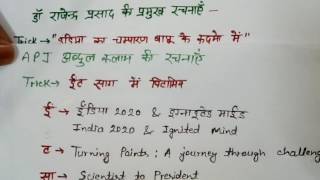 डॉ राजेन्द्र प्रसाद की प्रमुख रचनाएँ —
Trick → "इंडिया का चम्पारण बापू के कदमो में"
API अब्दुल कलाम की रचनाएँ
Trick → ईट साग में
ई → इंडिया 2020 & इग्नाइटेड माइंड
India 2020 & Ignited Mind
ट → Turning Points : A journey through challeng
सा → Scientist to President